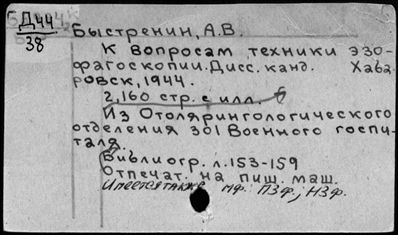 Д44
38
Быстренин, А.В.
К вопросам техники эзо-
фагоскопии. Дисс. канд. Хаба-
ровск, 1944.
2,160 стр. с илл.
Из Отолярингологического
отделения 301 Военного госпи-
таля.
Библиогр. л. 153-159
Отпечат. на пиш. маш.
Имеется также мф: ПЗф; НЗф.